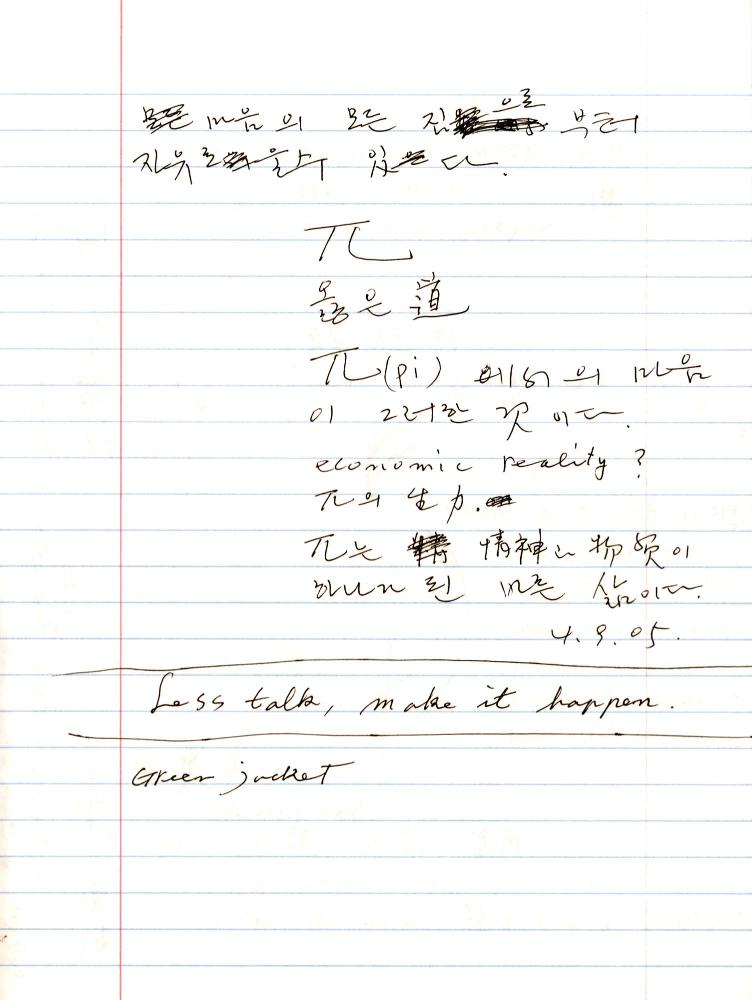 마음의 모든 짐으로 부터
자유로울수 있다.
π
옳은 道
π(pi) 에서의 마음
이 그러한 것이다.
economic reality?
π의 生力.
π는 情神과 物質이
하나가 된 바른 삶이다.
4. 9. 05.
Less talk, make it happen.
Green jacket